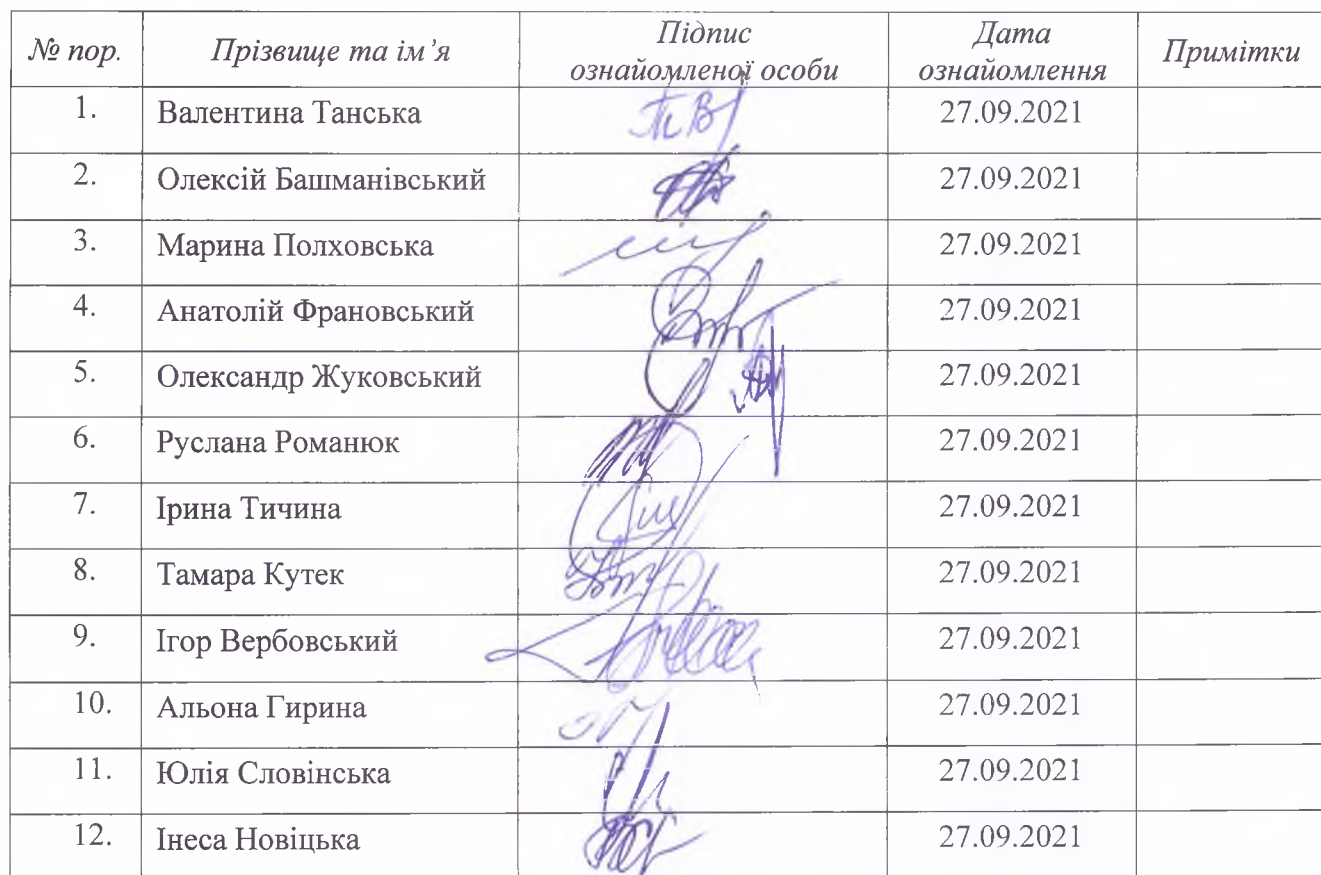 № пор. Прізвище та ім’я Підпис ознайомленої особи Дата ознайомлення Примітки
1. Валентина Танська 27.09.2021
2. Олексій Башманівський 27.09.2021
3. Марина Полховська 27.09.2021
4. Анатолій Франовський 27.09.2021
5. Олександр Жуковський 27.09.2021
6. Руслана Романюк 27.09.2021
7. Ірина Тичина 27.09.2021
8. Тамара Кутек 27.09.2021
9. Ігор Вербовський 27.09.2021
10. Альона Гирина 27.09.2021
11. Юлія Словінська 27.09.2021
12. Інеса Новіцька 27.09.2021